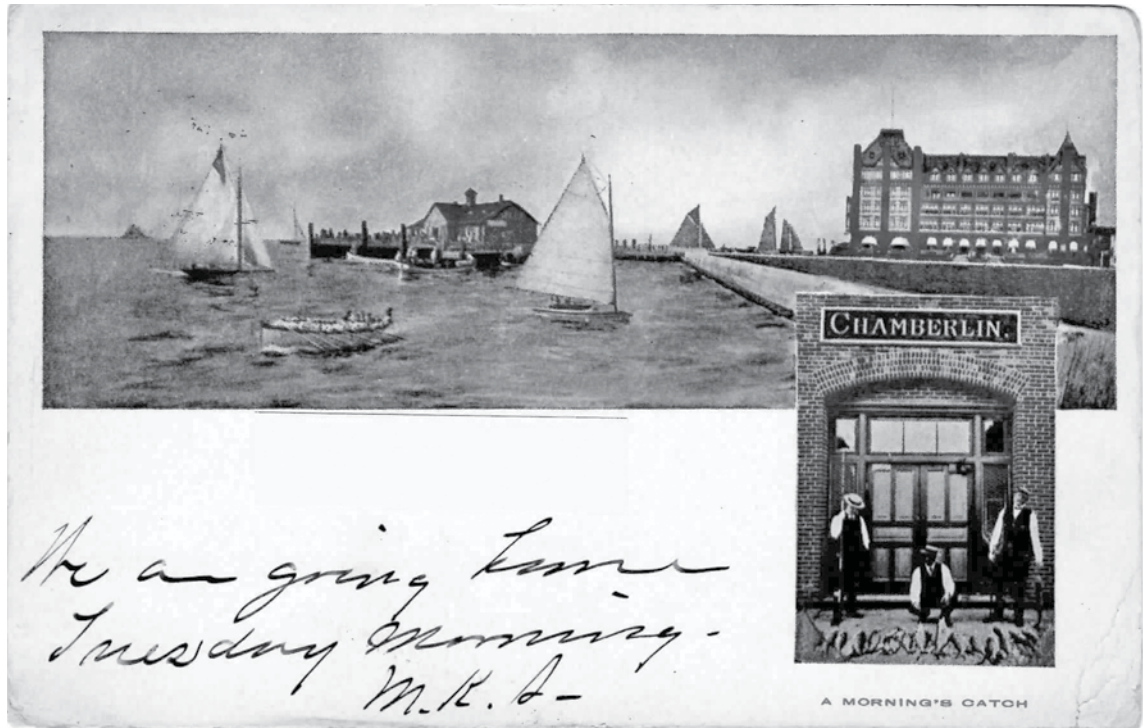 CHAMBERLIN.
We are going home
Tuesday Morning.
M.K.A-
A MORNING'S CATCH